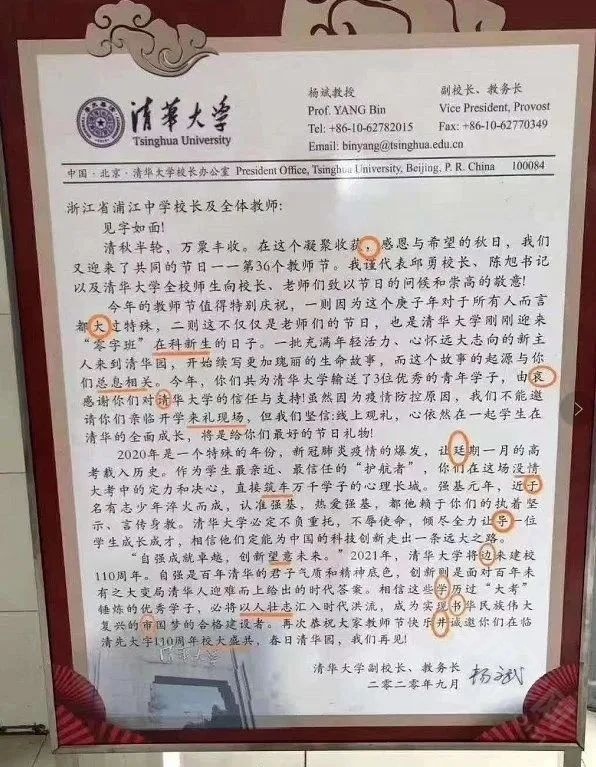 清華大学
Tsinghua University
杨斌教授
Prof. YANG Bin
Tel: +86-10-62782015
Email: binyang@tsinghua.edu.cn
副校长、教务长
Vice President, Provost
Fax: +86-10-62770349
中国·北京·清华大学校长办公室 President Office, Tsinghua University, Beijing, P. R. China 100084
浙江省浦江中学校长及全体教师：
见字如面！
清秋半轮，万粟丰收。在这个凝聚收获，感恩与希望的秋日，我们
又迎来了共同的节日一一第36个教师节。我谨代表邱勇校长、陈旭书记
以及清华大学全校师生向校长、老师们致以节日的问候和崇高的敬意！
今年的教师节值得特别庆祝，一则因为这个庚子年对于所有人而言
都大过特殊，二则这不仅仅是老师们的节日，也是清华大学刚刚迎来
“零字班”在科新生的日子。一批充满年轻活力、心怀远大志向的新主
人来到清华园，开始续写更加瑰丽的生命故事，而这个故事的起源与你
们总息相关。今年，你们共为清华大学输送了3位优秀的青年学子，由哀
感谢你们对清华大学的信任与支持！虽然因为疫情防控原因，我们不能邀
请你们亲临开学来礼现场，但我们坚信：线上观礼，心依然在一起学生在
清华的全面成长，将是给你们最好的节日礼物！
2020年是一个特殊的年份，新冠肺炎疫情的爆发，让廷期一月的高
考载入历史。作为学生最亲近、最信任的“护航者”，你们在这场没情
大考中的定力和决心，直接筑车万千学子的心理长城。强基元年，近子
名有志少年淬火而成，认准强基，热爱强基，都他赖于你们的执着坚
示、言传身教。清华大学必定不负重托，不辱使命，倾尽全力让导一位
学生成长成才，相信他们定能为中国的科技创新走出一条远大之路。
“自强成就卓越，创新望意未来。”2021年，清华大学将边来建校
110周年。自强是百年清华的君子气质和精神底色，创新则是面对百年未
有之大变局清华人迎难而上给出的时代答案。相信这些学历过“大考”
锤炼的优秀学子，必将以人壮志汇入时代洪流，成为实现书华民族伟大
复兴的审国梦的合格建设者。再次恭祝大家教师节快乐井诚邀你们在临
清先大字110周年校大盛共，春日清华园，我们再见！
清华大学副校长、教务长
二零二零年九月
杨斌